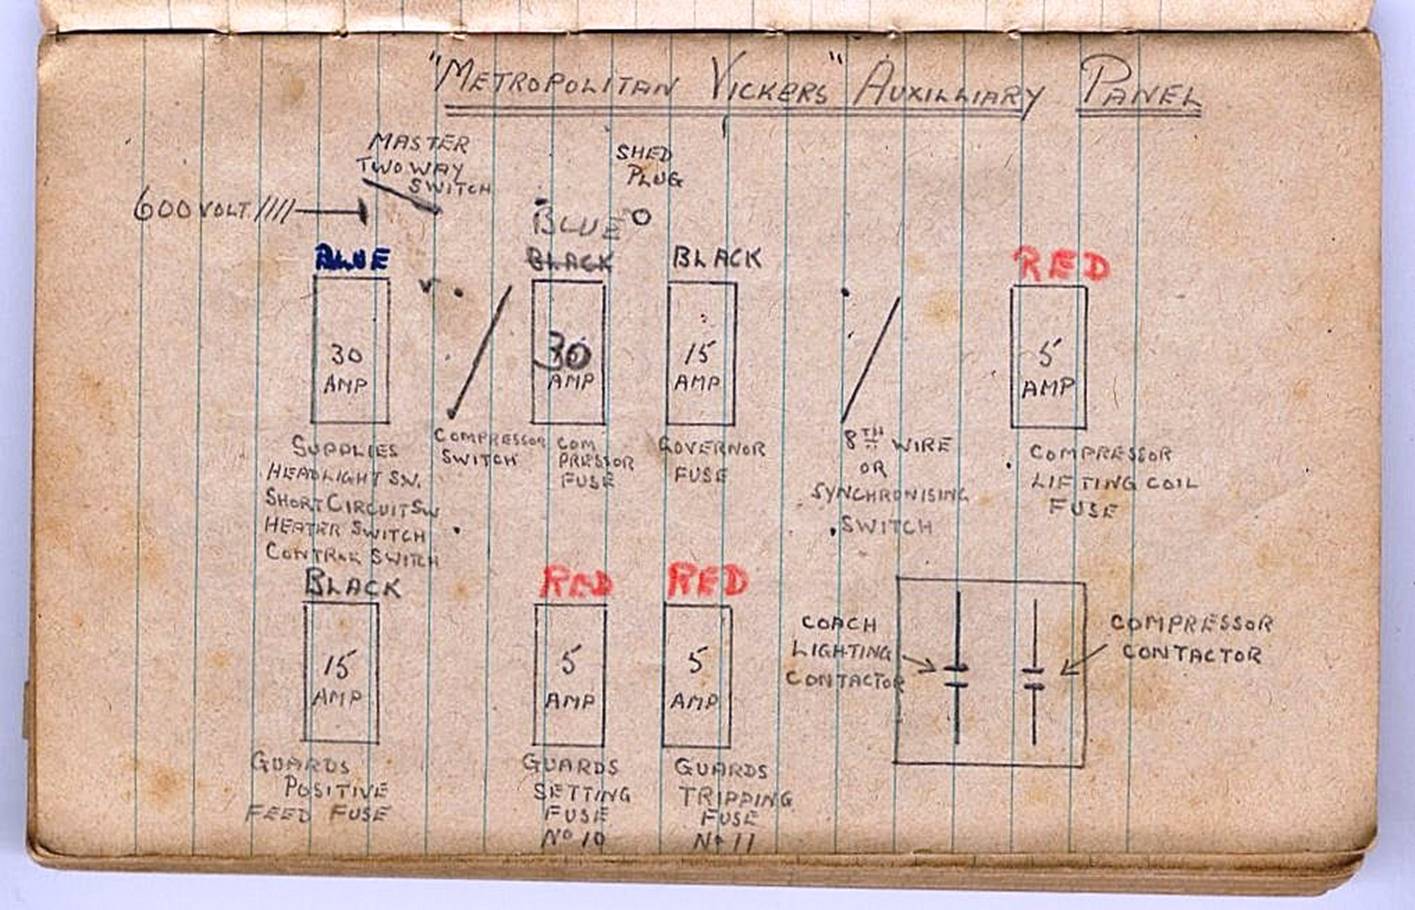 "METROPOLITAN VICKERS" AUXILLIARY PANEL
MASTER
TWO WAY
SWITCH
SHED
PLUG
600 VOLT
BLUE
BLUE
BLACK
BLACK
RED
30
AMP
30
AMP
15
AMP
5
AMP
SUPPLIES
HEADLIGHT SW.
SHORT CIRCUIT SW
HEATER SWITCH
CONTROL SWITCH
COMPRESSOR
SWITCH
COM
PRESSOR
FUSE
GOVERNOR
FUSE
8TH WIRE
OR
SYNCHRONISING
SWITCH
COMPRESSOR
LIFTING COIL
FUSE
BLACK
RED
RED
15
AMP
5
AMP
5
AMP
COACH
LIGHTING
CONTACTOR
COMPRESSOR
CONTACTOR
GUARDS
POSITIVE
FEED FUSE
GUARDS
SETTING
FUSE
No 10
GUARDS
TRIPPING
FUSE
No 11